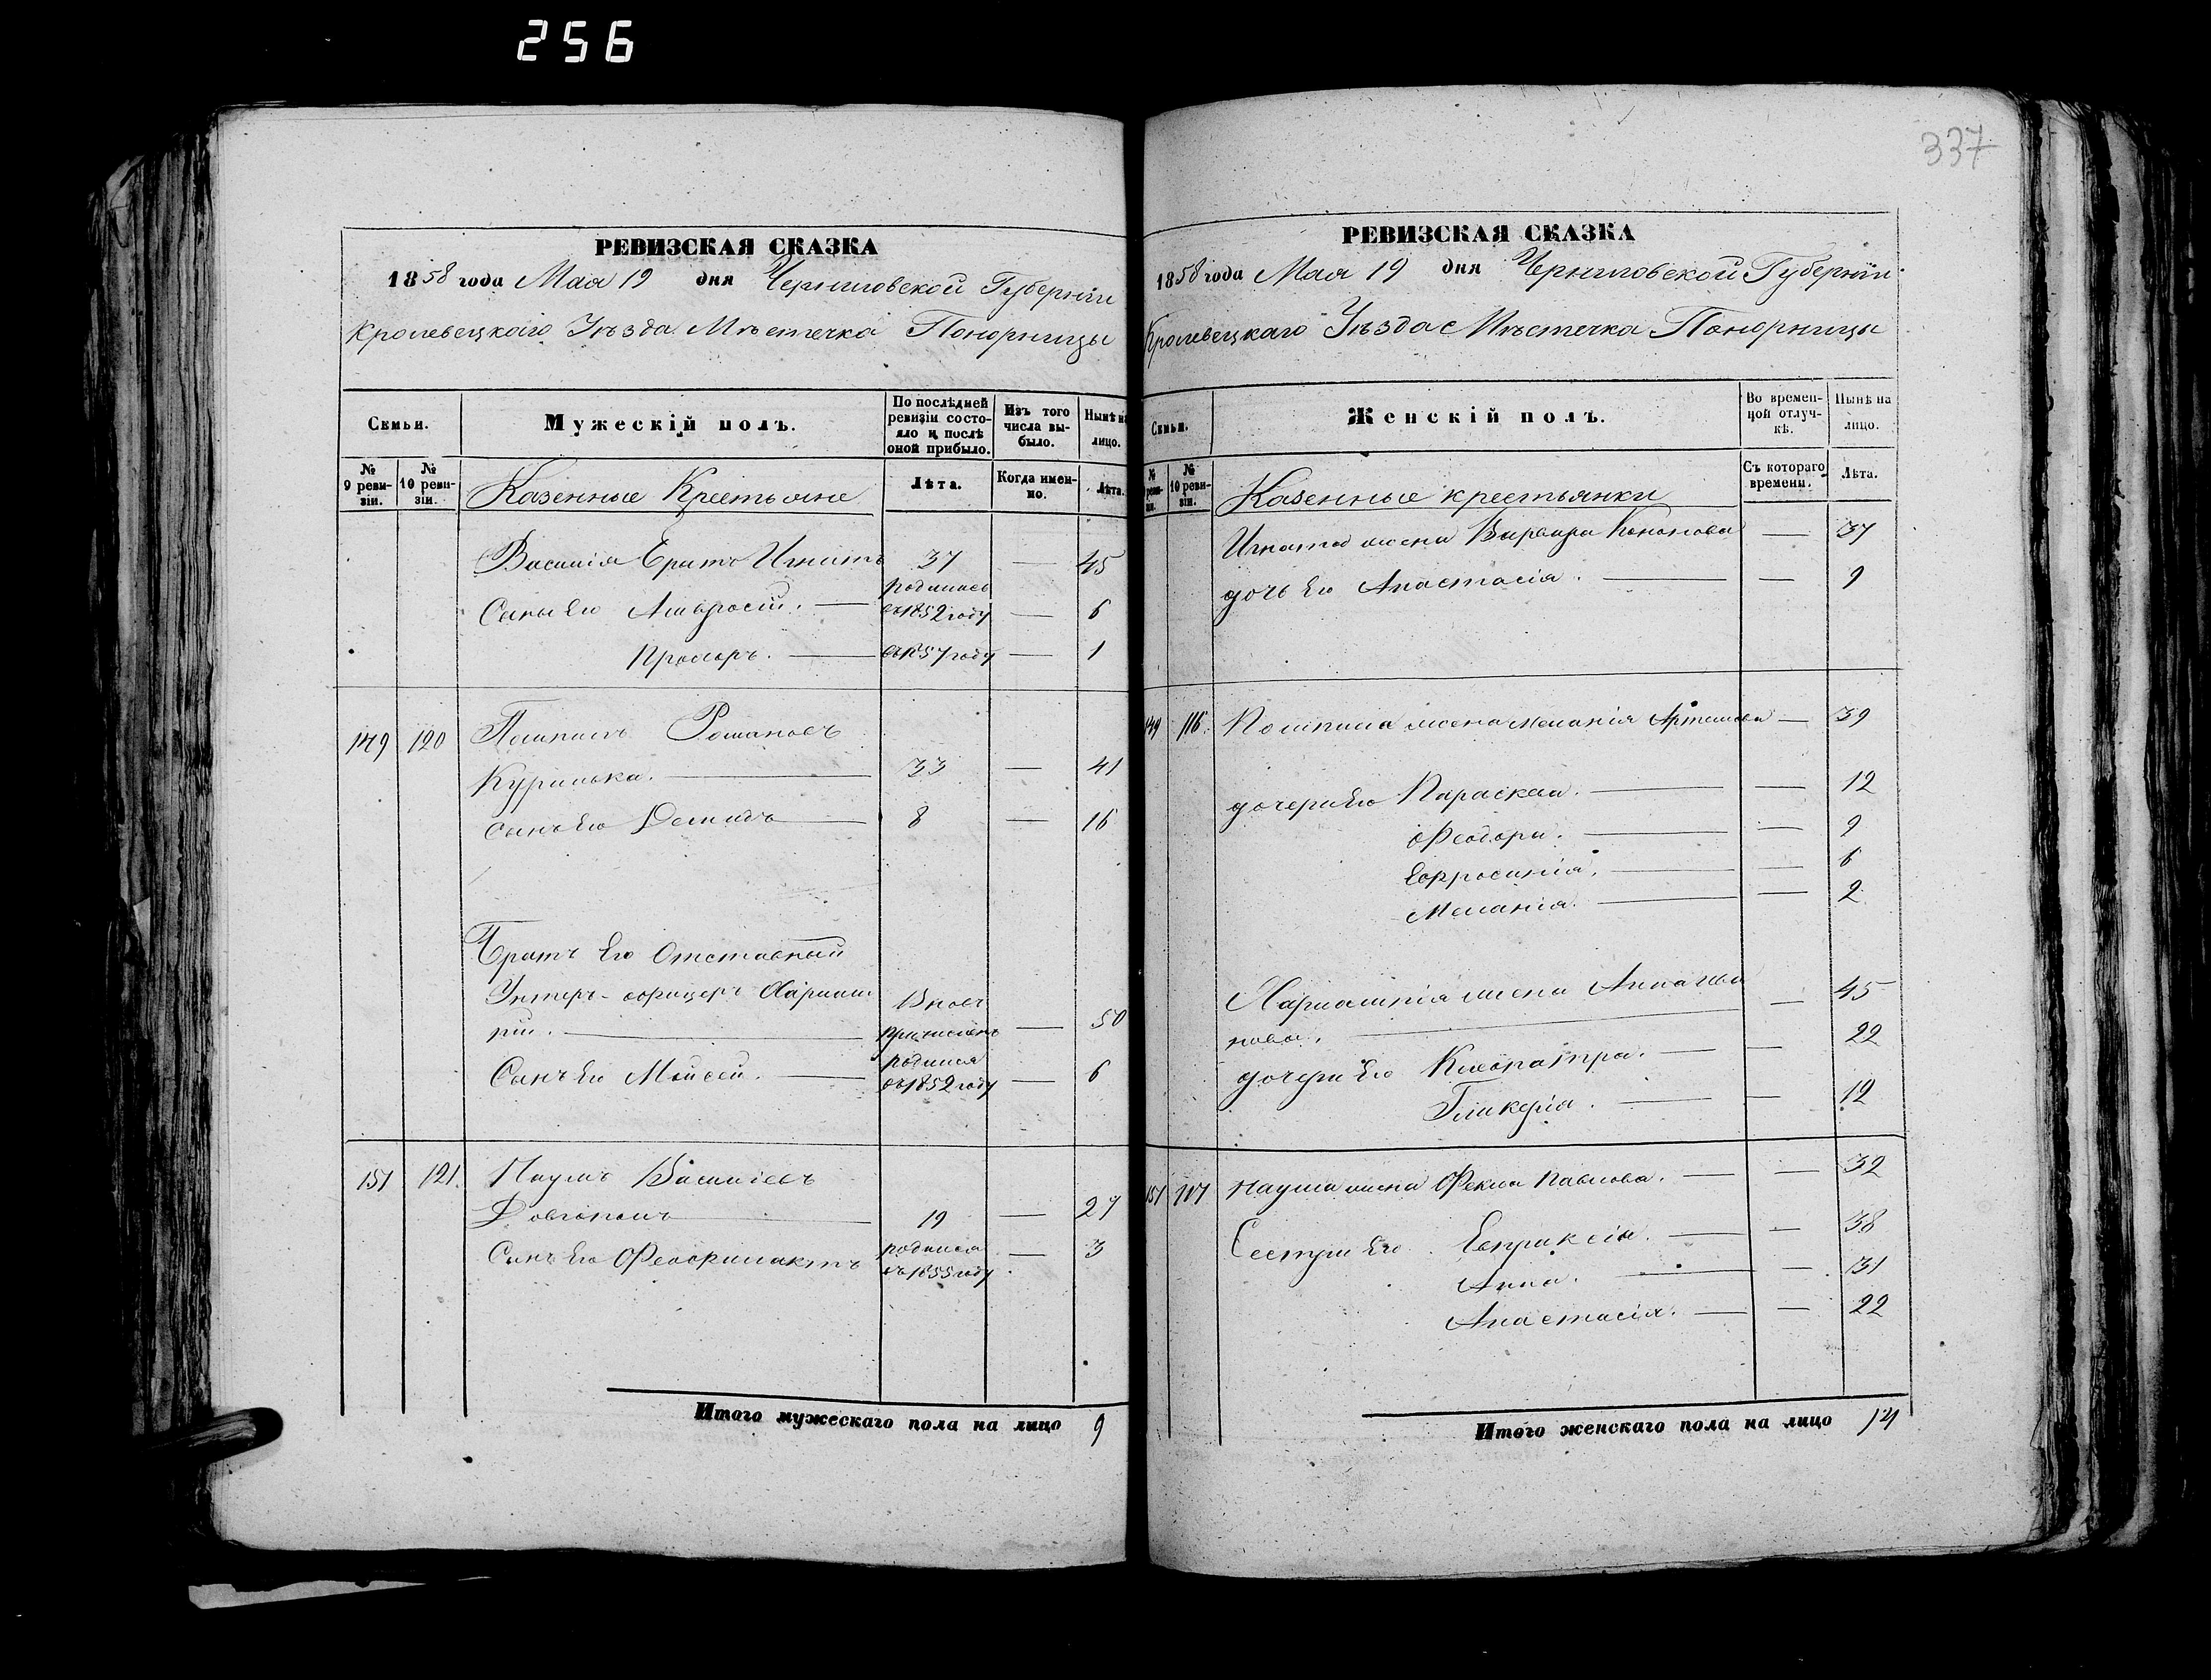 256
337
РЕВИЗСКАЯ СКАЗКА
1858 года Мая 19 дня Черниговской Губерніи
Кролевецкаго Уѣзда Мѣстечка Понорницы
Семьи.
Мужескій полъ.
По послѣдней ревизіи состояло и послѣ оной прибыло.
Изъ того числа выбыло.
Нынѣ на лицо.
№ 9 ревизіи.
№ 10 ревизіи.
Казенные Крестьяне
Лѣта.
Когда именно.
Лѣта.
Василія братъ Игнатъ 37 — 45
родился
Сыны Его Амвросій. — въ 1852 году — 6
Прохоръ. — въ 857 году — 1
149 120 Романовъ
Курилька. — 33 — 41
Сынъ Его Демидъ — 8 — 16
Братъ Его Отставный
Унтеръ-офицеръ Харлам Вновь
пій. — причисленъ — 50
родился
Сынъ Его Мойсей. — въ 1852 году — 6
151 121. Наумъ Василіевъ
Довгополъ — 19 — 27
родился
Сынъ Его Феофилактъ въ 1855 году — 3
Итого мужескаго пола на лицо 9
РЕВИЗСКАЯ СКАЗКА
1858 года Мая 19 дня Черниговской Губерніи.
Кролевецкаго Уѣзда Мѣстечка Понорницы
Семьи.
Женскій полъ.
Во временной отлучкѣ.
Нынѣ на лицо.
№
№ 10 ревизіи.
Казенные крестьянки
Съ котораго времени.
Лѣта.
Игната жена Варвара Кононова — 37
дочь Его Анастасія. — — 9
149 116. жена Меланія Артемова — 39
дочери Его Параскева. — — 12
Феодора. — — 9
Евфросинія. — — 6
Меланія. — — 2
Харлампія жена Анна — 45
нова. —
дочери Его Клеопатра. — — 22
Гликерія. — — 12
151 117 Наума жена Фекла Павлова. — — 32
Сестры Его Евпраксія. — — 38
Анна. — — 31
Анастасія. — — 22
Итого женскаго пола на лицо 14